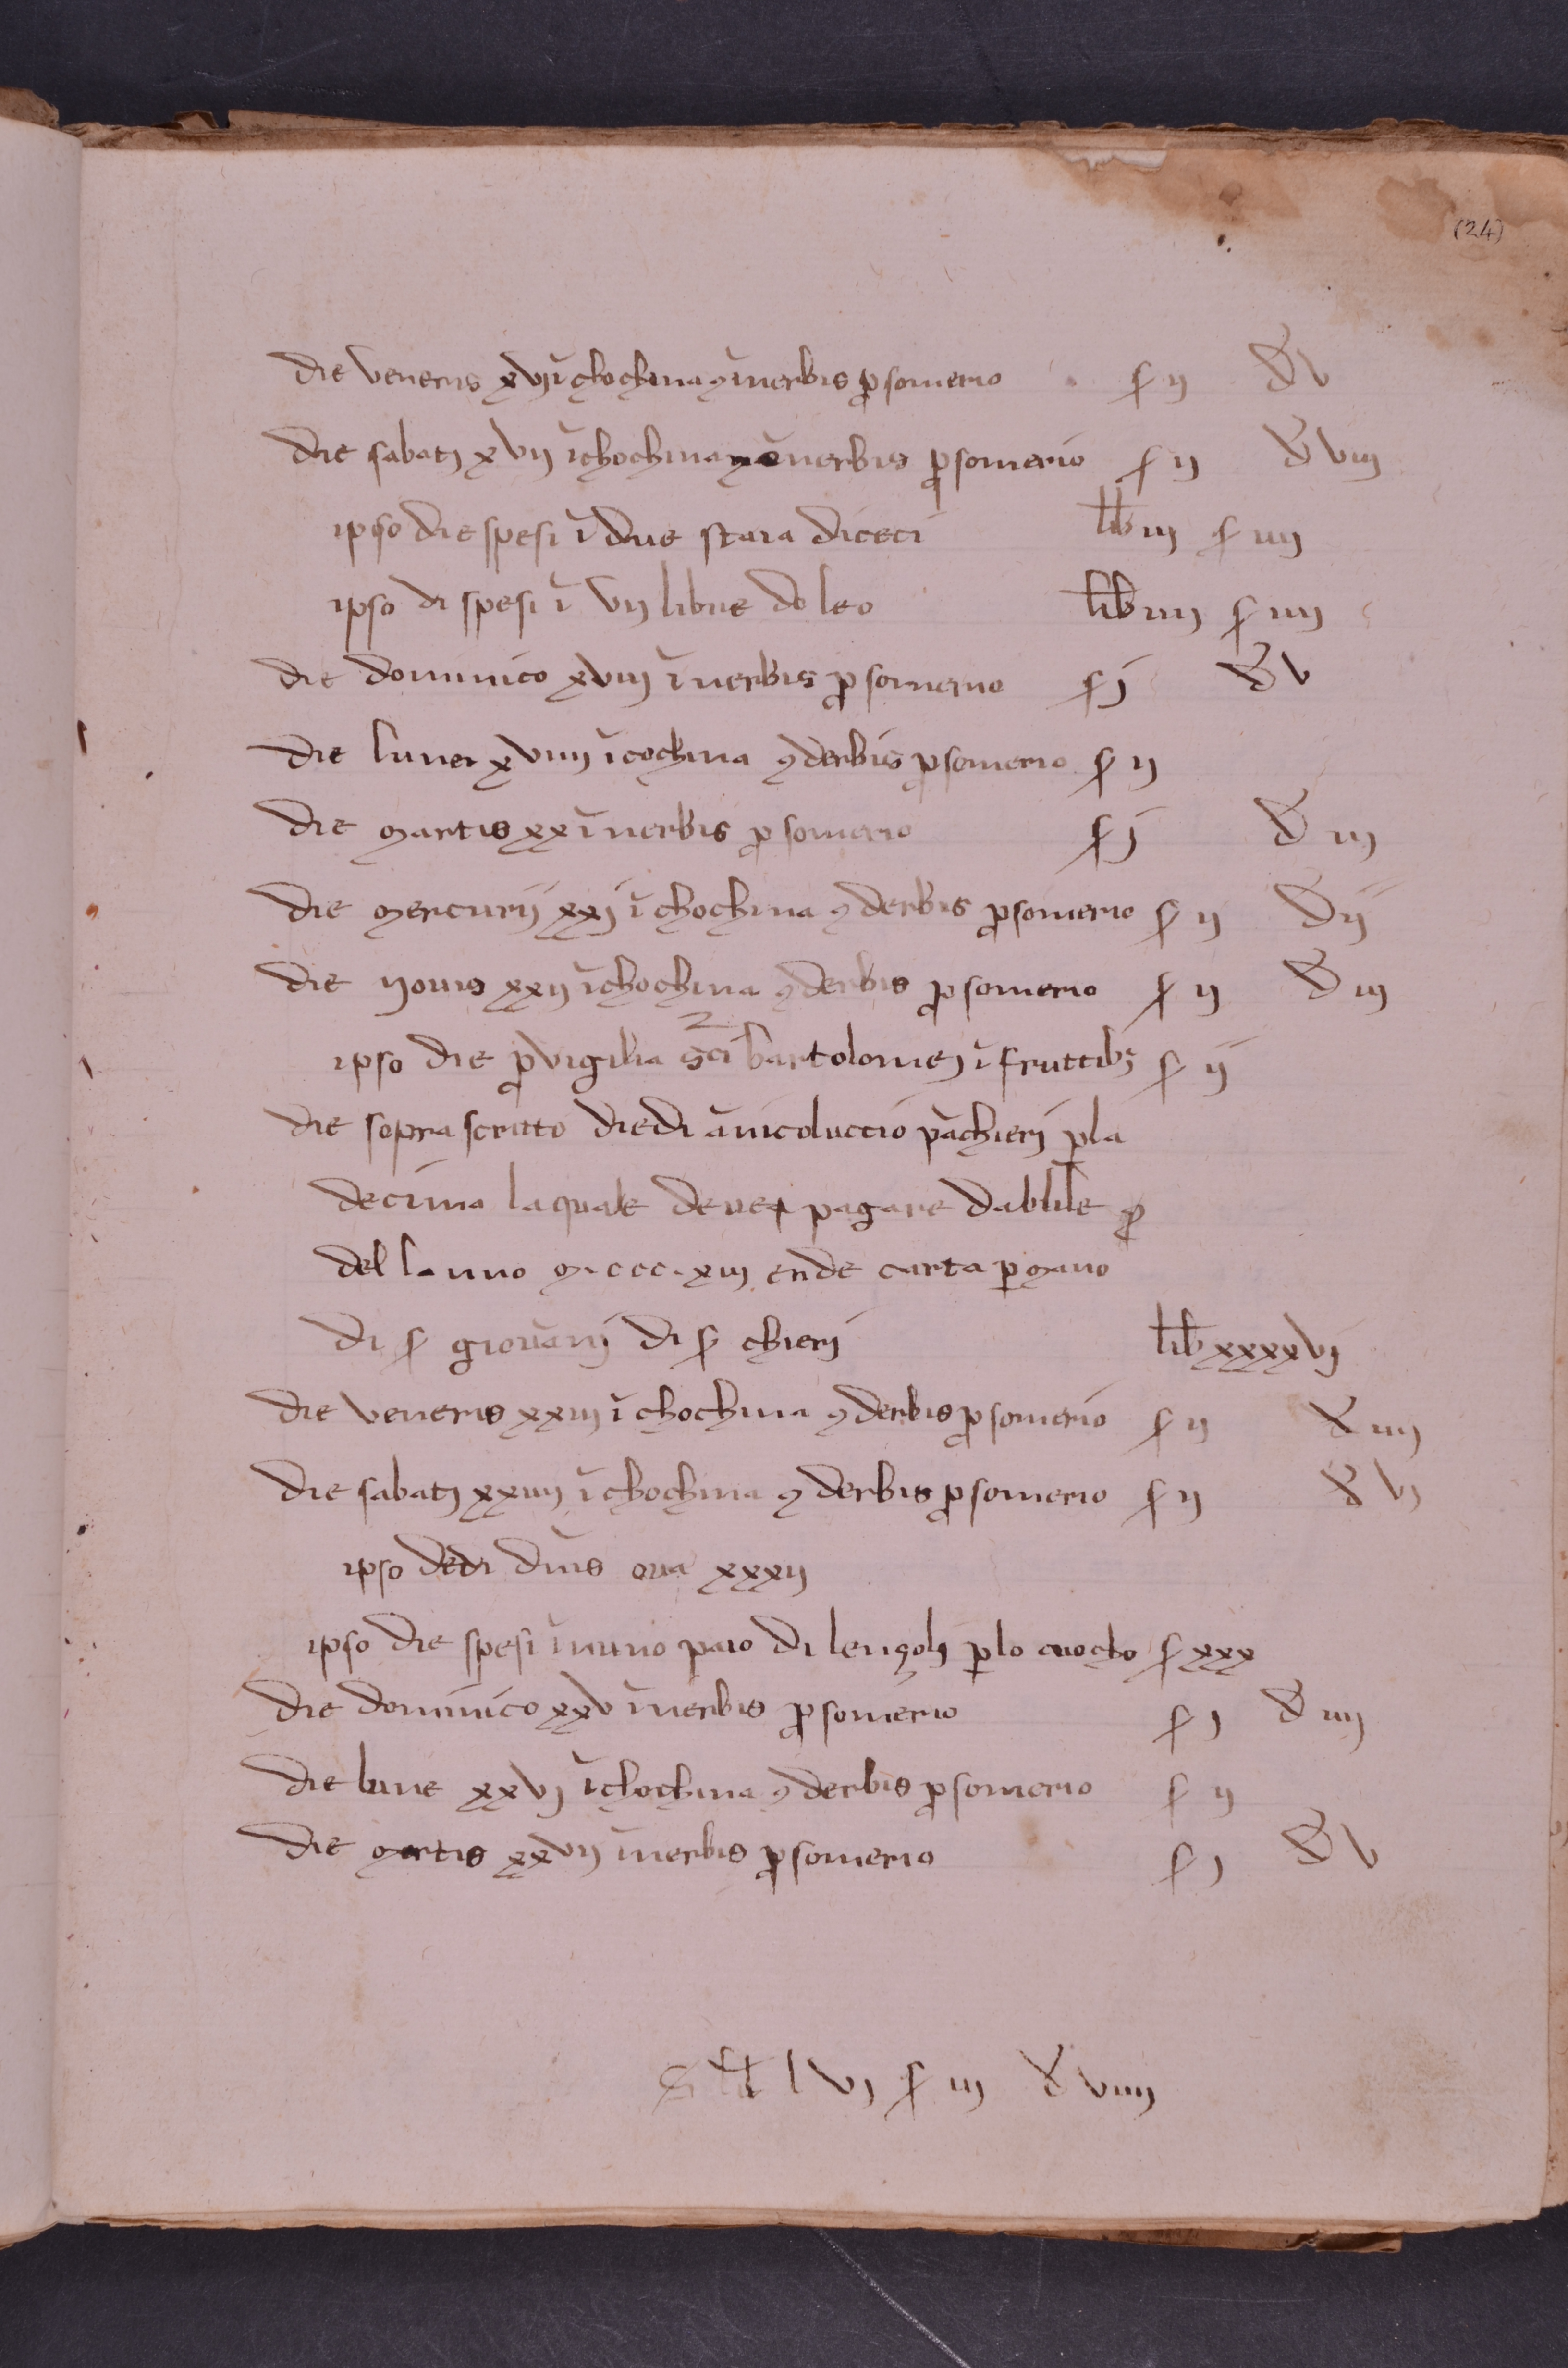 (24)
die veneris xvj ĩ chochina ꝯ ĩ nerbis ꝓ somerio ſ ij đ v
die sabatj xvij ĩ chochina ĩ nerbis ꝓ somerio ſ ij đ viij
ipso die spesi ĩ due staia diceci lib iij ſ iiij
ipso di spesi ĩ vij libre do leo lib iiij ſ iiij
die dominico xviij ĩ nerbis ꝓ somerio ſ j đ v
die luner xviiij ĩ cochina ꝯ derbis ꝓ somerio ſ ij
die martis xx ĩ nerbis ꝓ somerio ſ j đ iij
die mercurij xxj ĩ chochina ꝯ derbis ꝓ somerio ſ ij đ ij
die novis xxij ĩ chochina ꝯ derbis ꝓ somerio ſ ij đ iij
ipso die ꝓ vigilia sci bartolomej ĩ fruttibꝫ ſ ij
die sopra scritto diedi a nicoluccio vãchierj ꝑ la
decima la quale deve pagare dablile ꝓ
del lanno m.ccc.xiij ende carta ꝑ mano
di ſ giovãnj di ſ chierj lib xxxxvj
die veneris xxiij ĩ chochina ꝯ derbis ꝓ somerio ſ ij đ iiij
die sabatj xxiiij ĩ chochina ꝯ derbis ꝓ somerio ſ ij đ vj
ipso dedi dnis ova xxxij
ipso die spesi ĩ nuno paio di lenzolj ꝑ lo cuocho ſ xxx
die dominico xxv ĩ nerbis ꝓ somerio ſ j đ iiij
die lune xxvj ĩ chochina ꝯ derbis ꝓ somerio ſ ij
die martis xxvij ĩ nerbis ꝓ somerio ſ j đ v
lvj ſ iij đ viiij